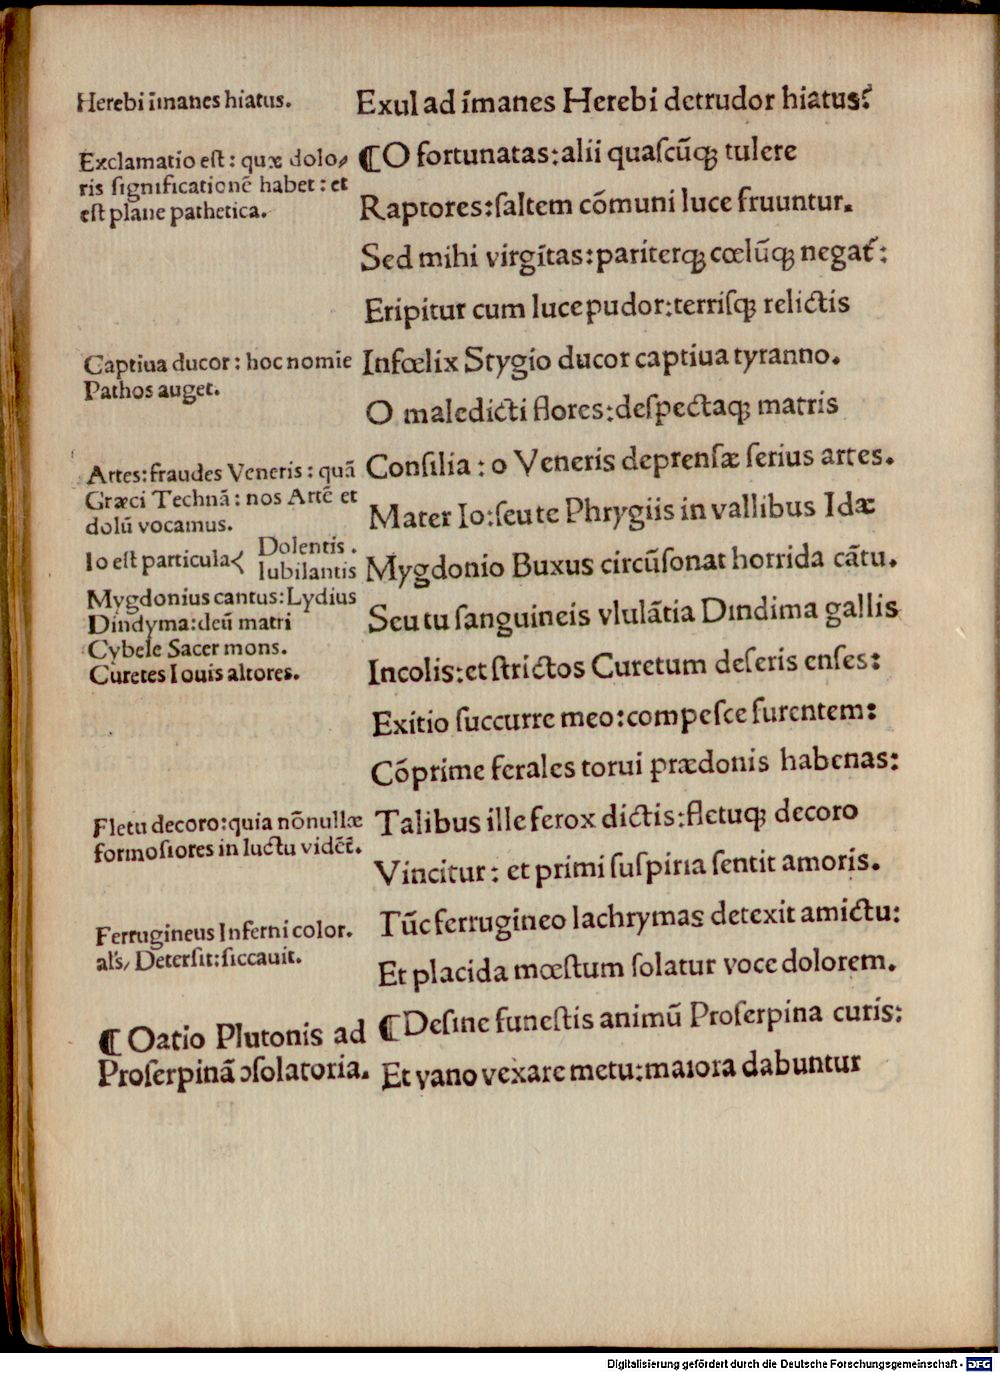 Herebi īmanes hiatus.
Exclamatio eſt: quæ dolo⸗
ris ſignificationē habet: et
eſt plane pathetica.
Captiua ducor: hoc nomīe
Pathos auget.
Artes: fraudes Veneris: quā
Græci Technā: nos Artē et
dolū vocamus.
Io eſt particula< Dolentis.
Iubilantis
Mygdonius cantus: Lydius
Dindyma: deū matri
Cybele Sacer mons.
Curetes Iouis altores.
Fletu decoro: quia nōnullæ
formoſiores in luctu vidēt̄.
Ferrugineus Inferni color.
al's/ Deterſit: ſiccauit.
¶ Oatio Plutonis ad
Proſerpinā ↄſolatoria.
Exul ad īmanes Herebi detrudor hiatus?
¶ O fortunatas: alii quaſcūqꝫ tulere
Raptores: ſaltem cōmuni luce fruuntur.
Sed mihi virgītas: pariterqꝫ cœlūqꝫ negat᷑:
Eripitur cum luce pudor: terriſqꝫ relictis
Infœlix Stygio ducor captiua tyranno.
O maledicti flores: deſpectaqꝫ matris
Conſilia: o Veneris deprenſæ ſerius artes.
Mater Io: ſeu te Phrygiis in vallibus Idæ
Mygdonio Buxus circūſonat horrida cātu.
Seu tu ſanguineis vlulātia Dındima gallis
Incolis: et ſtrictos Curetum deſeris enſes:
Exitio ſuccurre meo: compeſce furentem:
Cōprime ferales torui prædonis habenas:
Talibus ille ferox dictis: fletuqꝫ decoro
Vincitur: et primi ſuſpiria ſentit amoris.
Tūc ferrugineo lachrymas detexit amictu:
Et placida mœſtum ſolatur voce dolorem.
¶ Deſine funeſtis animū Proſerpina curis:
Et vano vexare metu: maiora dabuntur
Digitalisierung gefördert durch die Deutsche Forschungsgemeinschaft - DFG